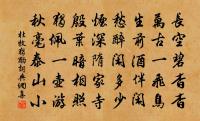 長空碧杳杳
萬古一飛鳥
生前酒伴閑
愁醉閑多少
煙深隋家寺
殷葉暗相照
獨佩一壺游
秋毫泰山小
杜牧獨酌詞典網